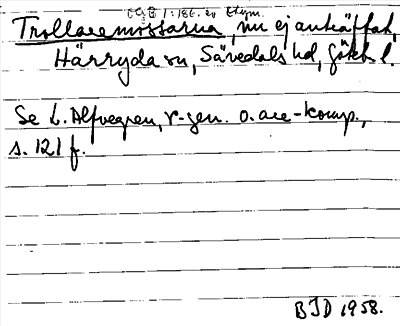 OGB I: 186. se etym.
Trollaremossarna, nu ej anträffat,
Härryda sn, Sävedals hd, Gbgs l.
Se L. Alfvegren, r-gen. o. are-komp.,
s. 121 f.
BJD 1958.